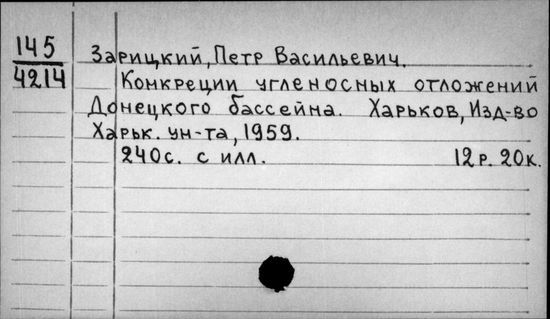 145
4214
Зарицкий, Петр Васильевич.
Конкреции угленосных отложений
Донецкого бассейна. Харьков, Изд-во
Харьк. ун-та, 1959.
240с. с илл. 12р. 20к.